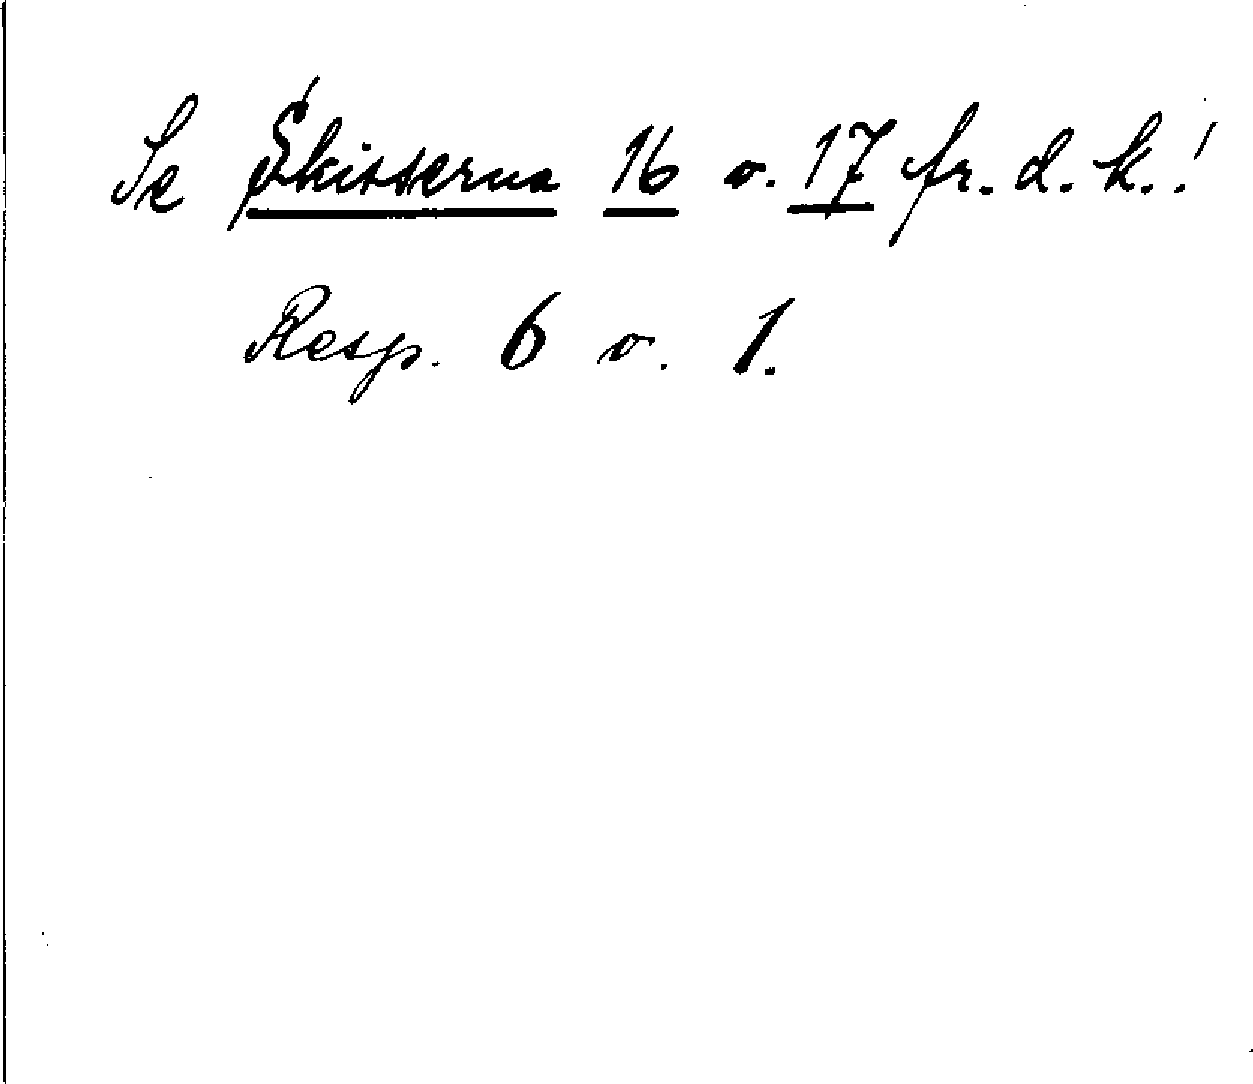 Se Skisserna 16 o. 17 fr. d. k.!
Resp. 6 o. 1.